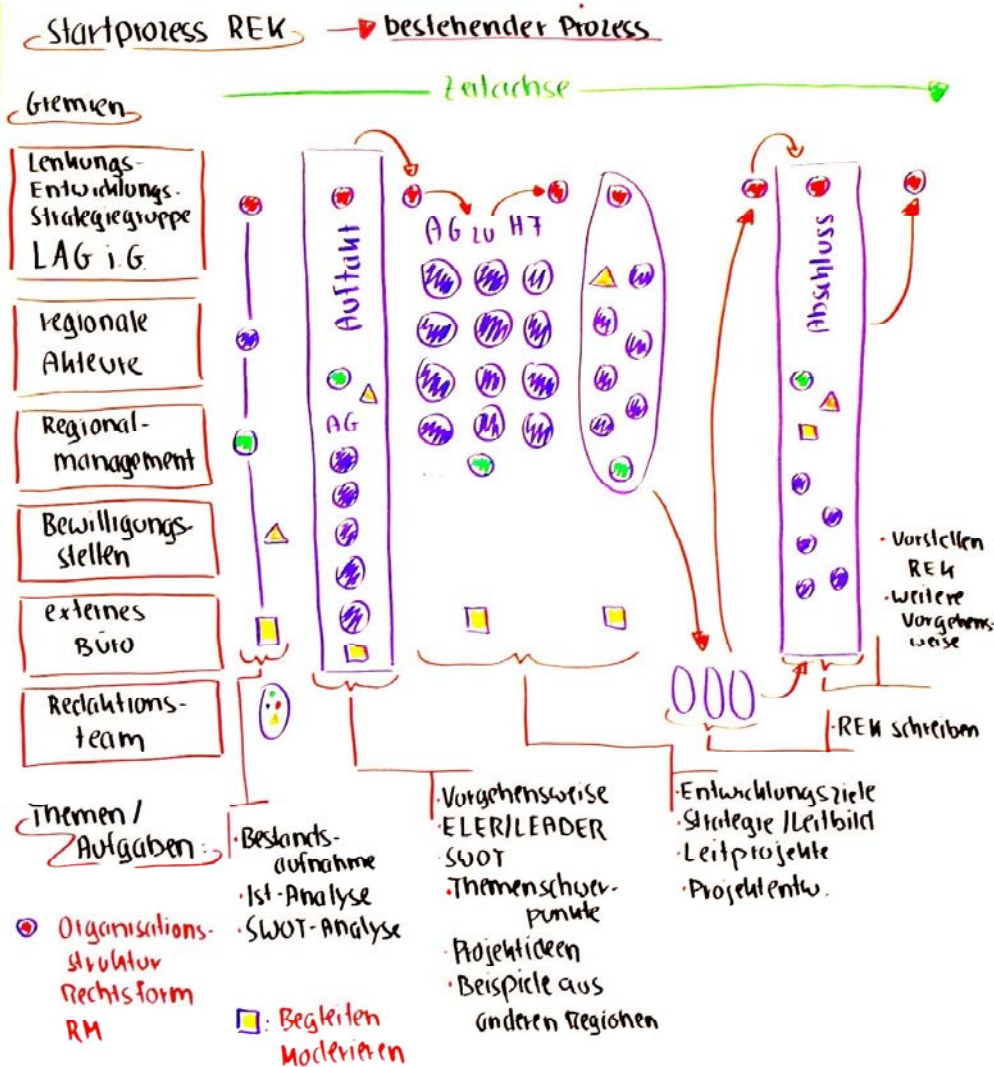 Startprozess REK → bestehender Prozess
Zeitachse
Gremien
Lenkungs-
Entwicklungs-
Strategiegruppe
LAG i.G.
regionale
Akteure
Regional-
management
Bewilligungs-
stellen
externes
Büro
Redaktions-
team
Auftakt
AG
AG zu HF
Abschluss
· Vorstellen
REK
· weitere
Vorgehens-
weise
· REK schreiben
Themen/
Aufgaben:
· Bestands-
aufnahme
· Ist-Analyse
· SWOT-Analyse
· Vorgehensweise
· ELER/LEADER
· SWOT
· Themenschwer-
punkte
· Projektideen
· Beispiele aus
anderen Regionen
· Entwicklungsziele
· Strategie/Leitbild
· Leitprojekte
· Projektentw.
Organisations-
struktur
Rechtsform
RM
: Begleiten
Moderieren